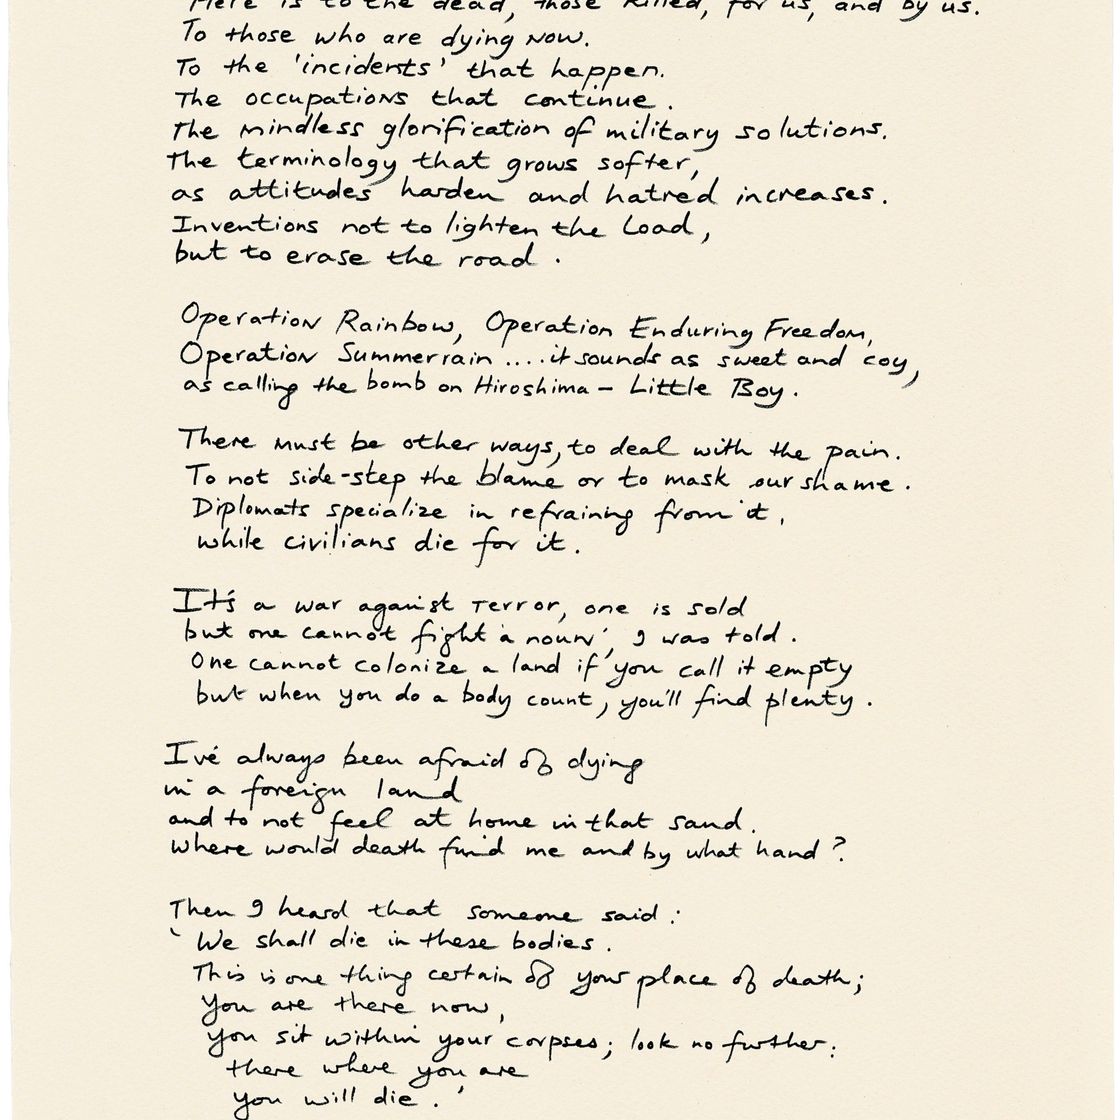 Here is to the dead, those killed, for us, and by us.
To those who are dying now.
To the 'incidents' that happen.
The occupations that continue.
The mindless glorification of military solutions.
The terminology that grows softer,
as attitudes harden and hatred increases.
Inventions not to lighten the load,
but to erase the road.
Operation Rainbow, Operation Enduring Freedom,
Operation Summerrain .... it sounds as sweet and coy,
as calling the bomb on Hiroshima – Little Boy.
There must be other ways, to deal with the pain.
To not side-step the blame or to mask our shame.
Diplomats specialize in refraining from it,
while civilians die for it.
It's a war against Terror, one is sold
but one cannot fight 'a noun', I was told.
One cannot colonize a land if you call it empty
but when you do a body count, you'll find plenty.
I've always been afraid of dying
in a foreign land
and to not feel at home in that sand.
Where would death find me and by what hand?
Then I heard that someone said:
'We shall die in these bodies.
This is one thing certain of your place of death;
you are there now,
you sit within your corpses; look no further:
there where you are
you will die.'